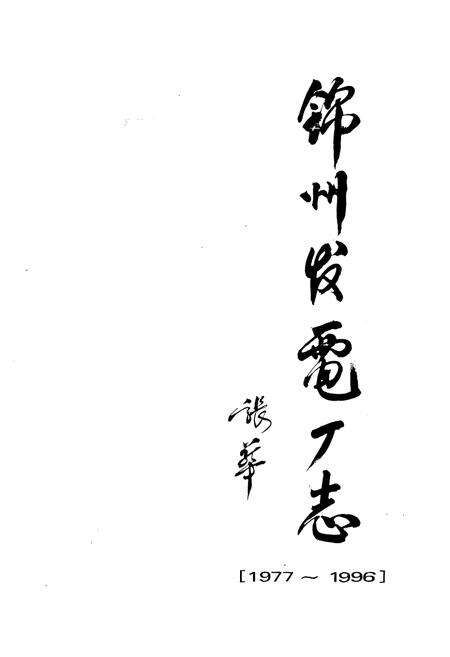 錦州发電厂志
張華
[1977～1996]